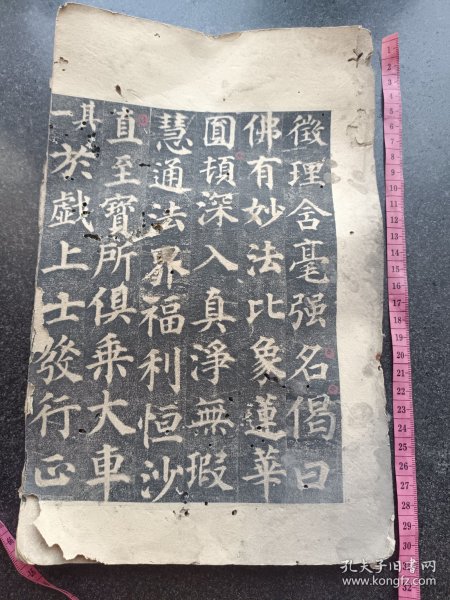 徵理含毫强名偈曰
佛有妙法比象蓮華
圓頓深入真淨無瑕
慧通法界福利恒沙
直至寶所俱乘大車
其一於戲上士發行正
孔夫子旧书网
www.kongfz.com